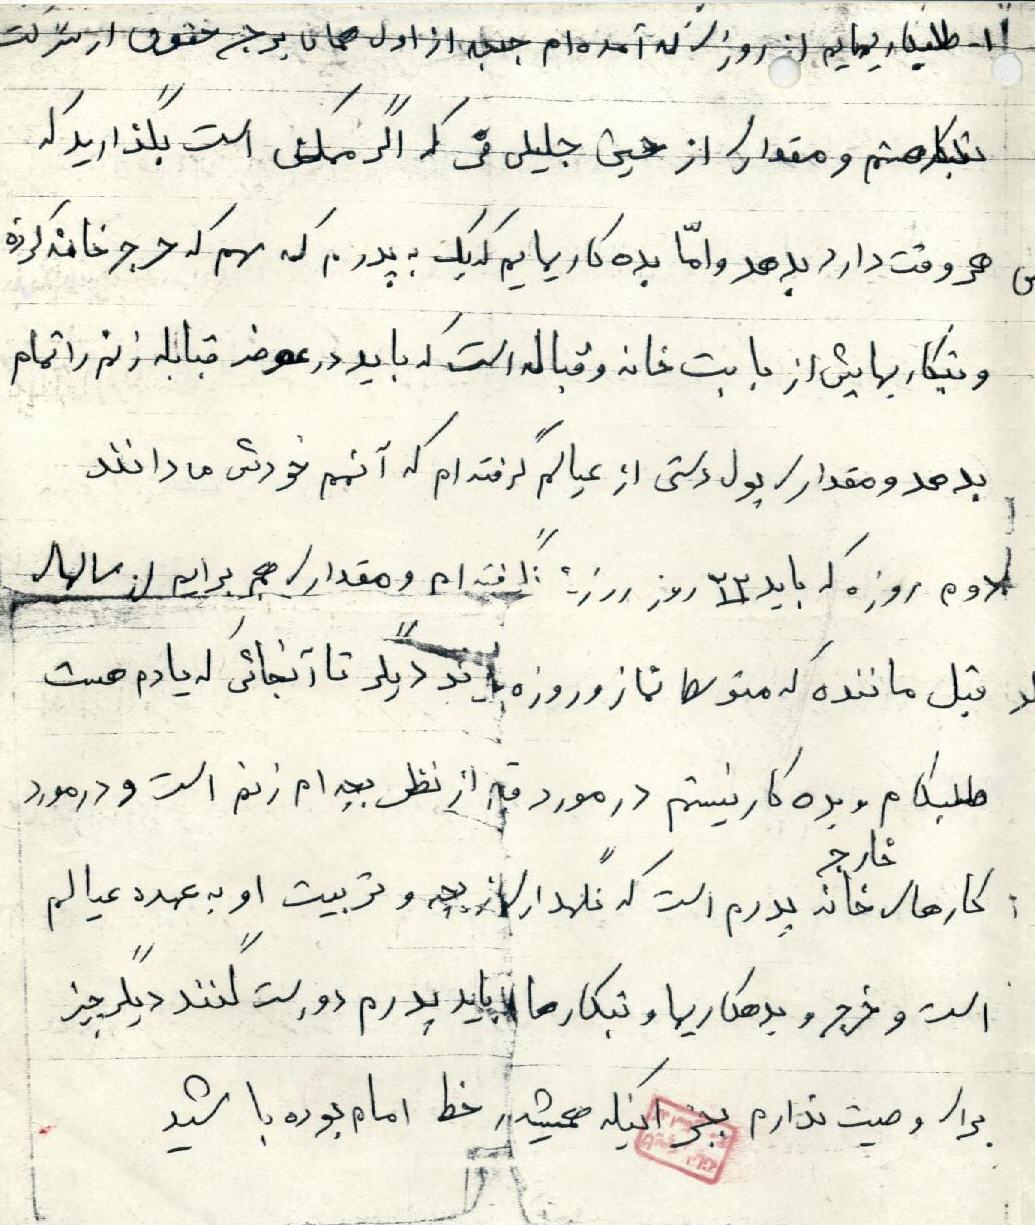 ۱- طلبکاریهایم از روزی که آمده ام جبهه از اول همان برج حقوق از شرکت
طلبکار هستم و مقداری از جلیلی که اگر ممکن است بگذارید که
هر وقت دارد بدهد و امّا بده کاریهایم که یک به پدرم که سهم که خرج خانه کرده
و از بابت خانه و قباله است که باید در عوض قباله زنم را تمام
بدهد و مقداری پول دستی از عیالم گرفته ام که آنهم خودش ما دانند
دوم روزه که باید ۲۳ روز روزه گرفته ام و مقداری هم برایم از سالهای
قبل مانده که نماز و روزه دیگر تا آنجائی که یادم هست
طلبکام و بده کار نیستم در مورد از نظر بچه ام زنم است و در مورد
خارج
کارهای خانه پدرم است که نگهداری از بچه و تربیت او به عهده عیالم
است و خرج و بدهکاریها و باید پدرم دورست کنند دیگر چیز
برای وصیت ندارم بجز اینکه همیشه در خط امام بوده باشید